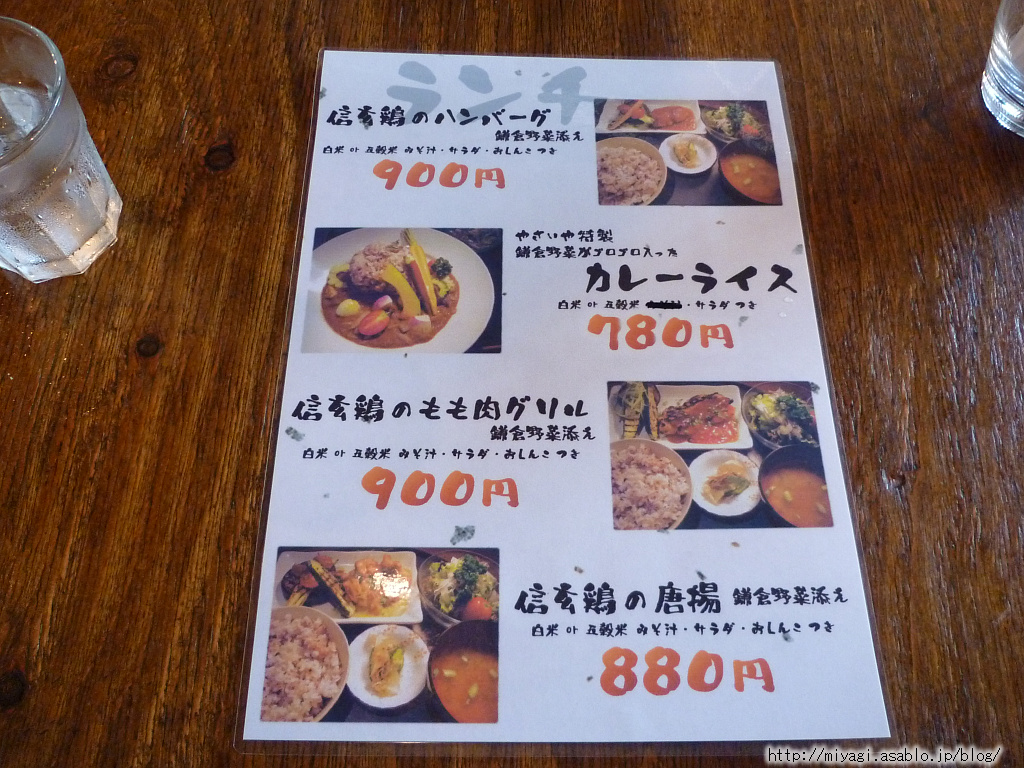 ランチ
信玄鶏のハンバーグ
鎌倉野菜添え
白米 or 五穀米 みそ汁・サラダ・おしんこつき
900円
やさいや特製
鎌倉野菜がゴロゴロ入った
カレーライス
白米 or 五穀米 ・サラダつき
780円
信玄鶏のもも肉グリル
鎌倉野菜添え
白米 or 五穀米 みそ汁・サラダ・おしんこつき
900円
信玄鶏の唐揚 鎌倉野菜添え
白米 or 五穀米 みそ汁・サラダ・おしんこつき
880円
http://miyagi.asablo.jp/blog/